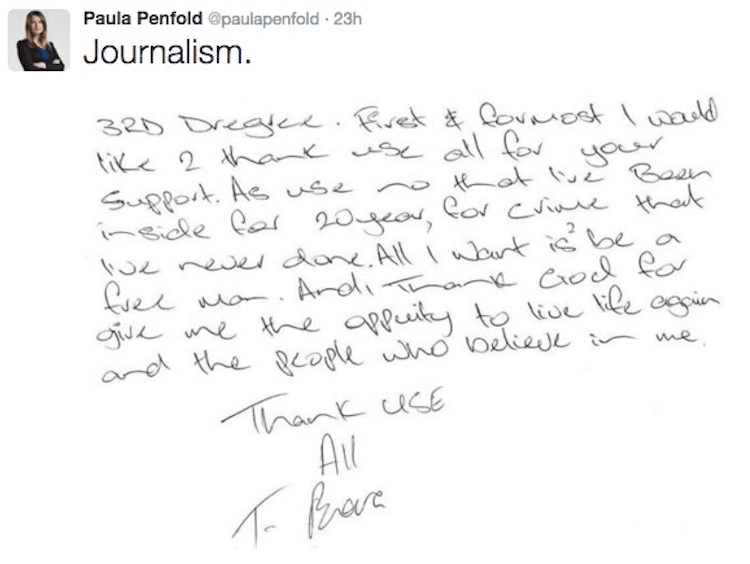 Paula Penfold @paulapenfold · 23h
Journalism.
3RD Dregree. First & formost I would
like 2 thank use all for your
Support. As use no that I've Been
inside for 20 year, for crime that
I've never done. All I want is 2 be a
free man. And I Thank God for
give me the oppuity to live life again
and the people who believe in me.
Thank USE
All
T-